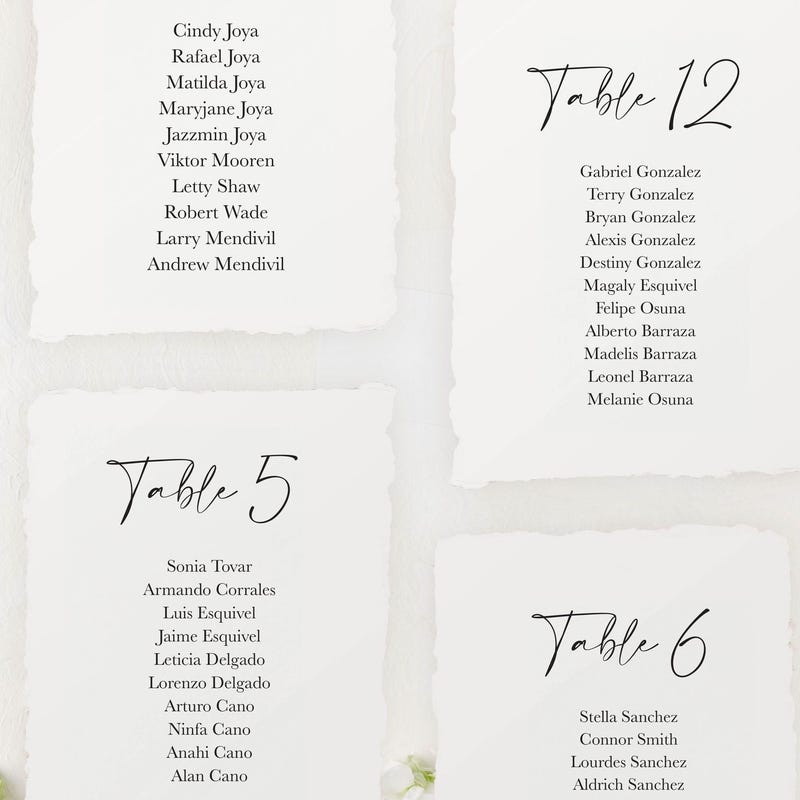 Cindy Joya
Rafael Joya
Matilda Joya
Maryjane Joya
Jazzmin Joya
Viktor Mooren
Letty Shaw
Robert Wade
Larry Mendivil
Andrew Mendivil
Table 12
Gabriel Gonzalez
Terry Gonzalez
Bryan Gonzalez
Alexis Gonzalez
Destiny Gonzalez
Magaly Esquivel
Felipe Osuna
Alberto Barraza
Madelis Barraza
Leonel Barraza
Melanie Osuna
Table 5
Sonia Tovar
Armando Corrales
Luis Esquivel
Jaime Esquivel
Leticia Delgado
Lorenzo Delgado
Arturo Cano
Ninfa Cano
Anahi Cano
Alan Cano
Table 6
Stella Sanchez
Connor Smith
Lourdes Sanchez
Aldrich Sanchez